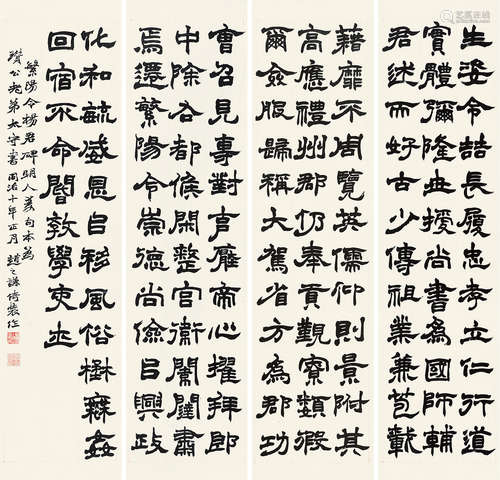 生姿令長履忠孝立仁行道
實體彌隆世授尚書為國師輔
君述而好古少傳祖業兼苞載
藉靡不周覽其儒仰則景附其
高應禮州郡仍奉貢觀寮類
爾僉服歸稱大駕省方為郡功
會召見專對言應帝心擢拜郎
中除右都候開整官衛闌闥肅
焉遷繁陽令崇德尚儉㠯興政
化和毓威恩自移風俗樹姦
回宿不命閽敦學吏
繁陽令楊君碑明人句本為
贊公老弟太守書同治十年正月趙之謙倚裝作